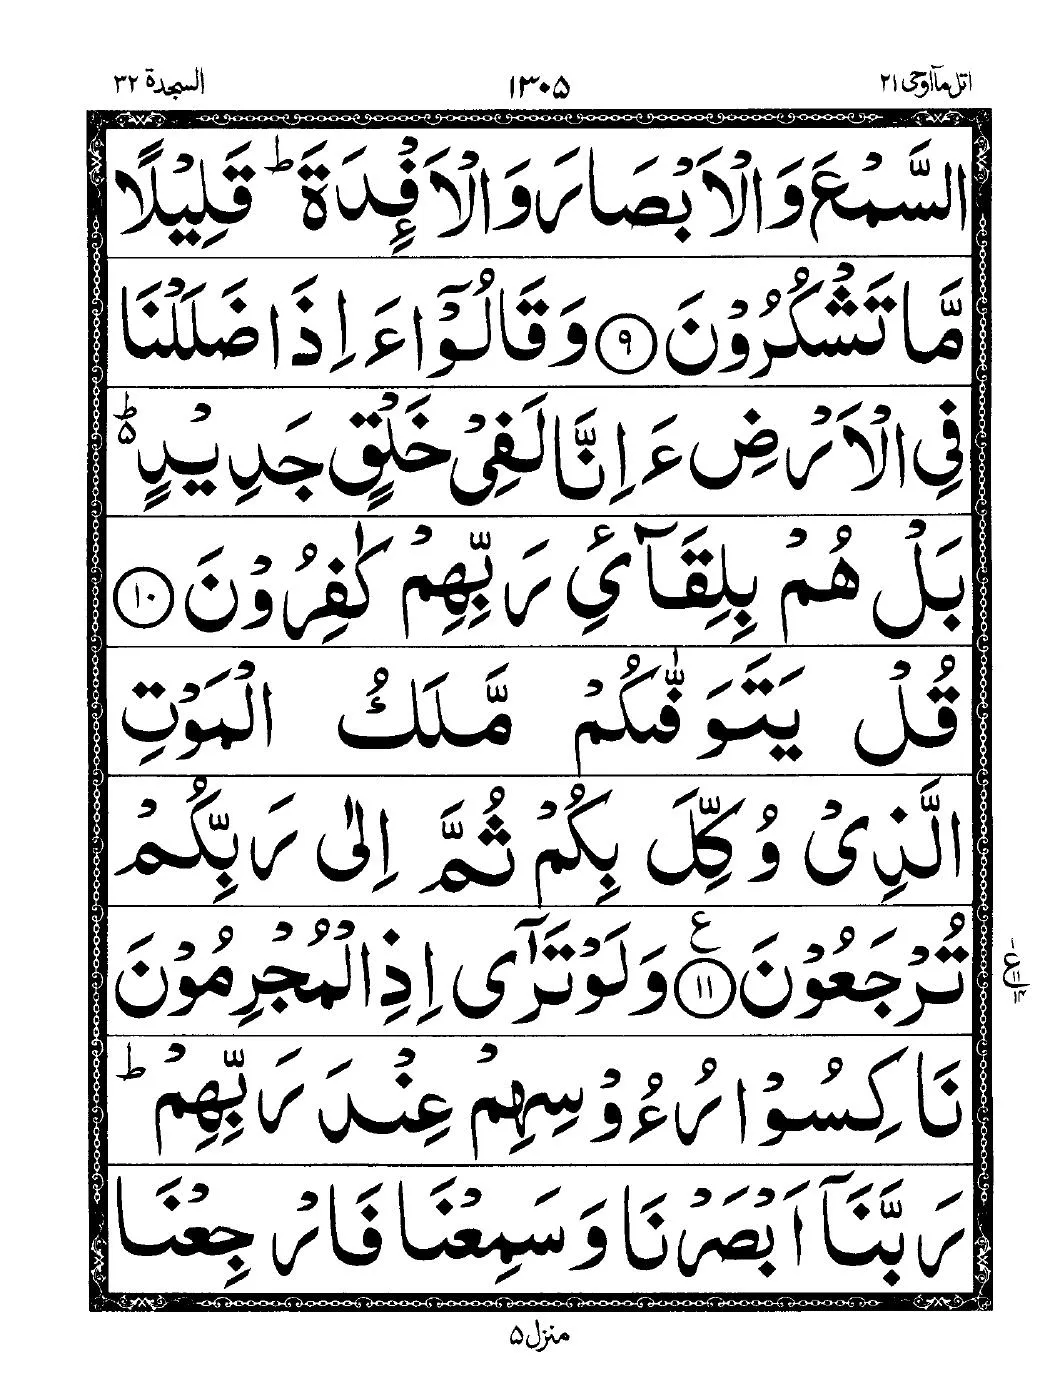 اتل ماۤاوحی ٢١
١٣٠٥
السجدة ٣٢
السَّمْعَ وَالْاَبْصَارَ وَالْاَفْـِٕدَةَ ؕ قَلِيْلًا
مَّا تَشْكُرُوْنَ ٩ وَقَالُوْۤا ءَاِذَا ضَلَلْنَا
فِي الْاَرْضِ ءَاِنَّا لَفِيْ خَلْقٍ جَدِيْدٍ ۬ؕ
بَلْ هُمْ بِلِقَآئِ رَبِّهِمْ كٰفِرُوْنَ ١٠
قُلْ يَتَوَفّٰىكُمْ مَّلَكُ الْمَوْتِ
الَّذِيْ وُكِّلَ بِكُمْ ثُمَّ اِلٰى رَبِّكُمْ
تُرْجَعُوْنَ ١١ ع وَلَوْ تَرٰۤى اِذِ الْمُجْرِمُوْنَ
١ ع ١١ ١٤
نَاكِسُوْا رُءُوْسِهِمْ عِنْدَ رَبِّهِمْ ؕ
رَبَّنَاۤ اَبْصَرْنَا وَسَمِعْنَا فَارْجِعْنَا
منزل ٥